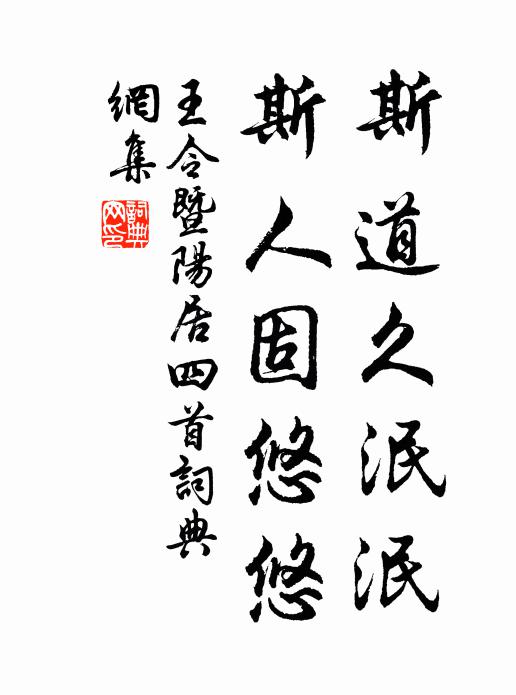 斯道久泯泯
斯人固悠悠
王令暨陽居四首詞典
網集
詞典
网印